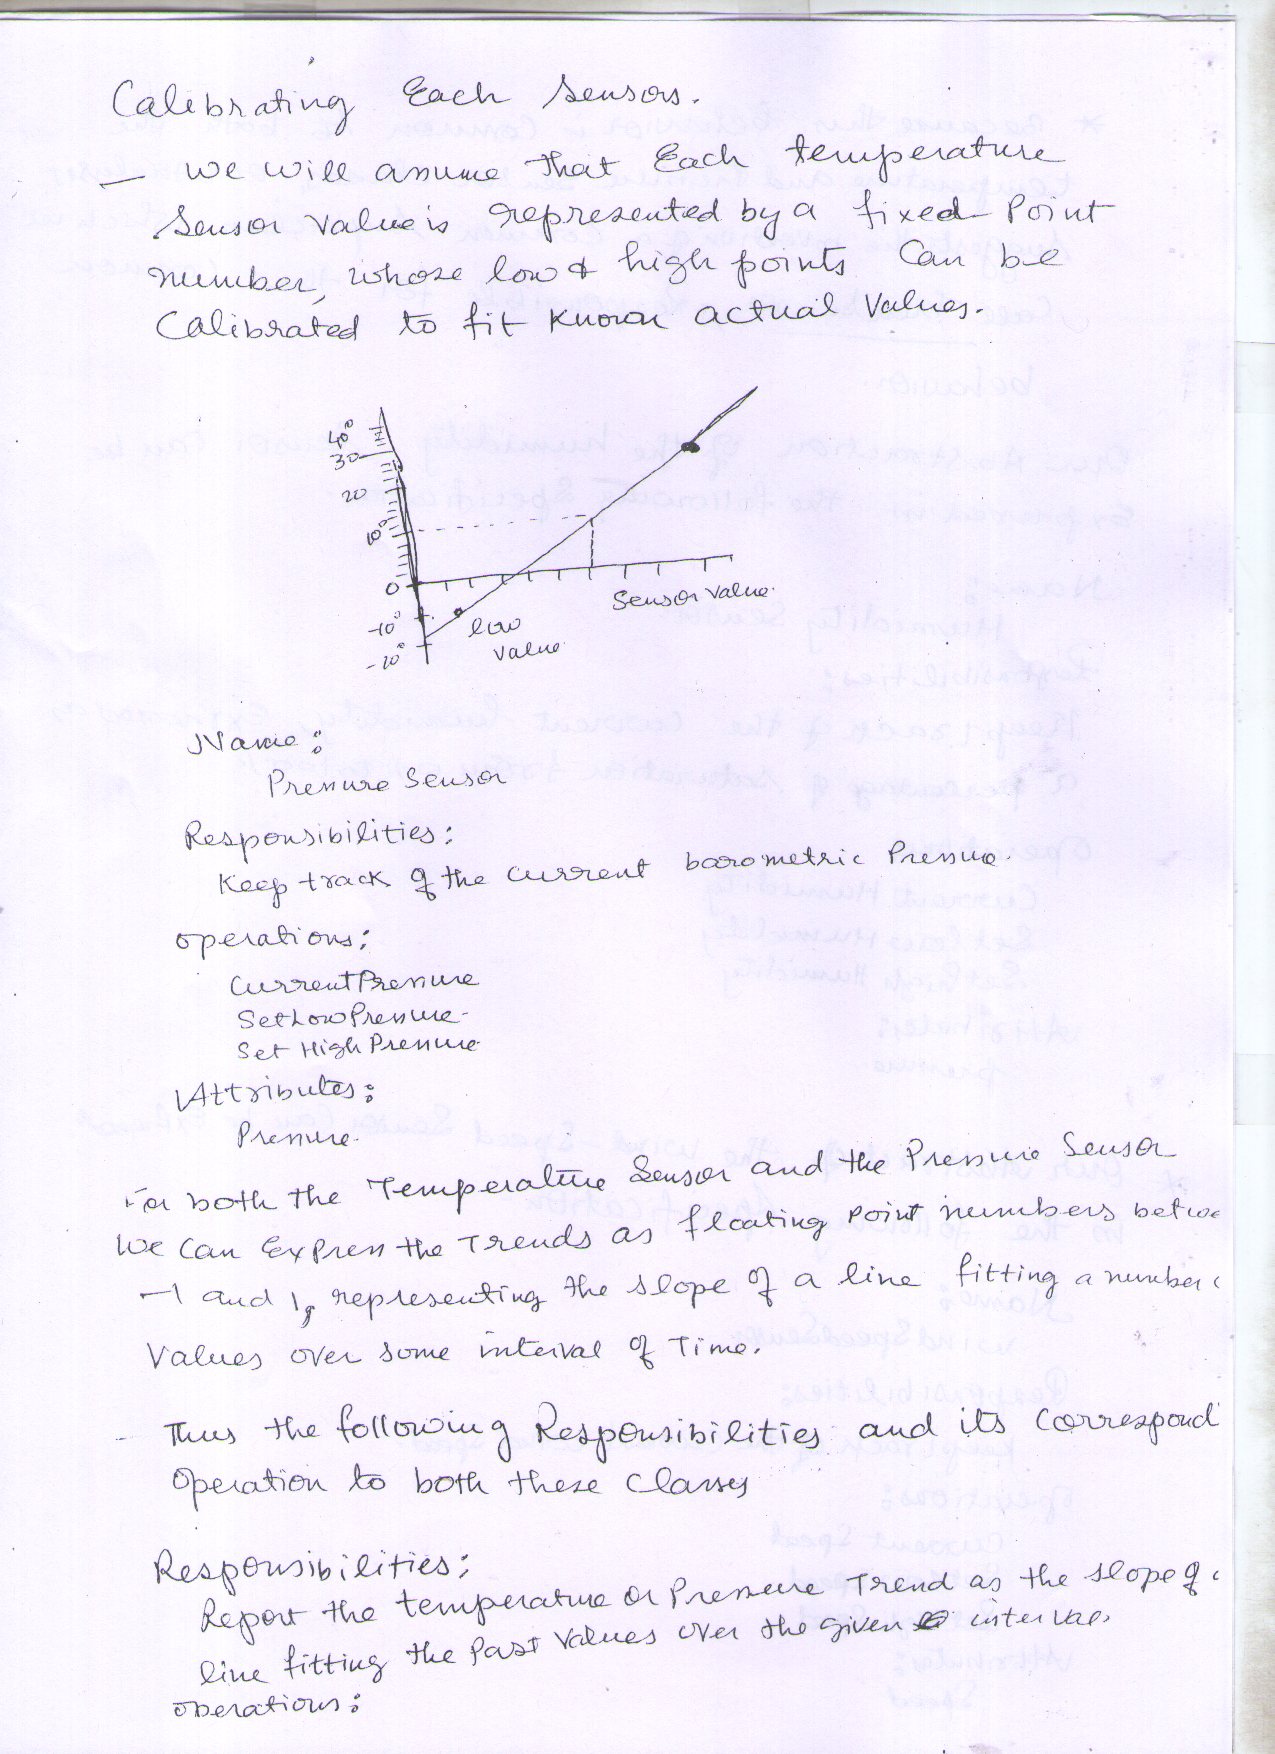 Calibrating Each Sensors.
— we will assume that Each temperature
Sensor value is represented by a fixed Point
number, whose low & high points can be
Calibrated to fit known actual values.
40°
30
20
10°
0
-10°
-20°
Sensor value
low
value
Name:
Pressure Sensor
Responsibilities:
Keep track of the current barometric Pressure.
operations:
CurrentPressure
SetLowPressure
Set HighPressure
Attributes:
Pressure
For both the Temperature Sensor and the Pressure Sensor
we can Express the Trends as floating Point numbers betwe
-1 and 1, representing the slope of a line fitting a number
Values over some interval of Time.
Thus the following Responsibilities and its correspond
operation to both these Classes
Responsibilities:
Report the temperature or Pressure Trend as the slope of
line fitting the Past values over the given interval.
operations: